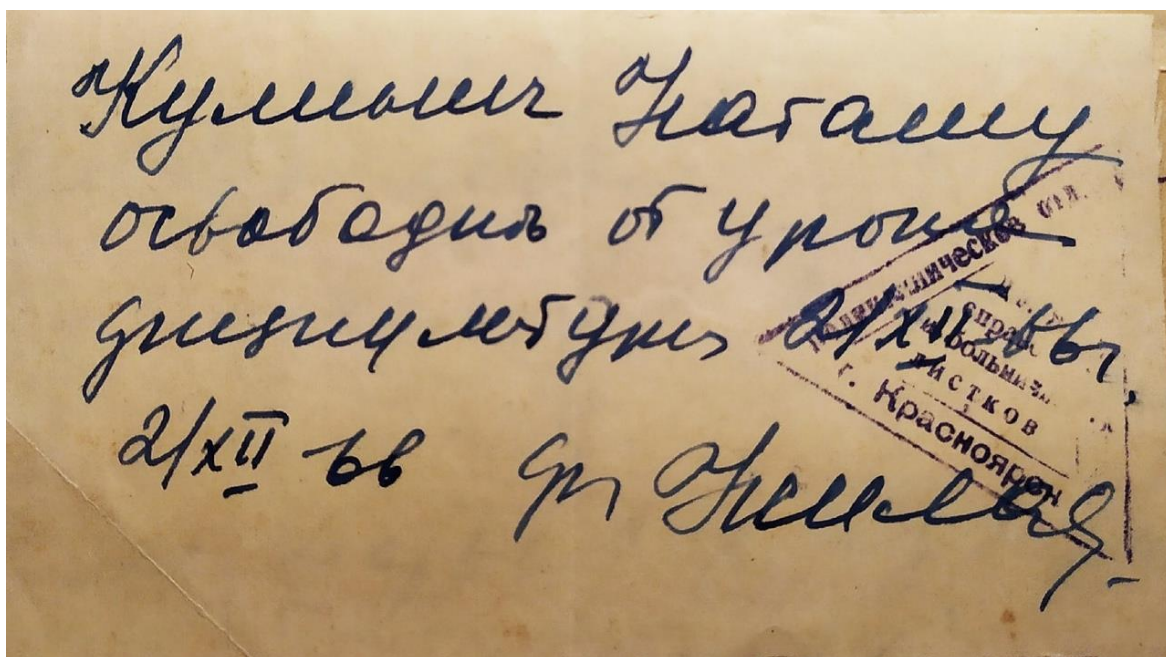 Наташу
освободить от урока
физкультуры 21/XII-66 г.
21/XII-66 вр
Поликлиническое отд.
больничных
листков
г. Красноярск